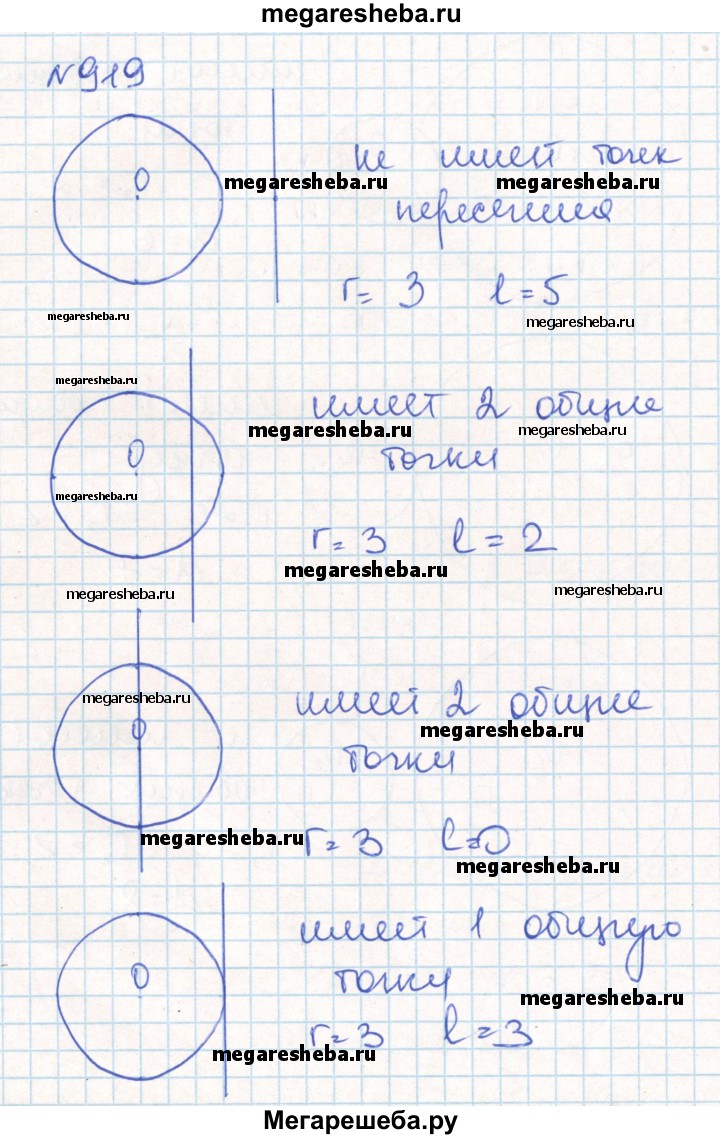 megaresheba.ru
N 919
O
не имей точек
megaresheba.ru megaresheba.ru
пересечения
r = 3 l = 5
megaresheba.ru megaresheba.ru
megaresheba.ru
имеет 2 общие
megaresheba.ru megaresheba.ru
O точки
megaresheba.ru
r = 3 l = 2
megaresheba.ru
megaresheba.ru megaresheba.ru
megaresheba.ru имеет 2 общие
O megaresheba.ru
точки
megaresheba.ru r = 3 l = 0
megaresheba.ru
имеет 1 общую
O точку
megaresheba.ru
r = 3 l = 3
megaresheba.ru
Мегарешеба.ру